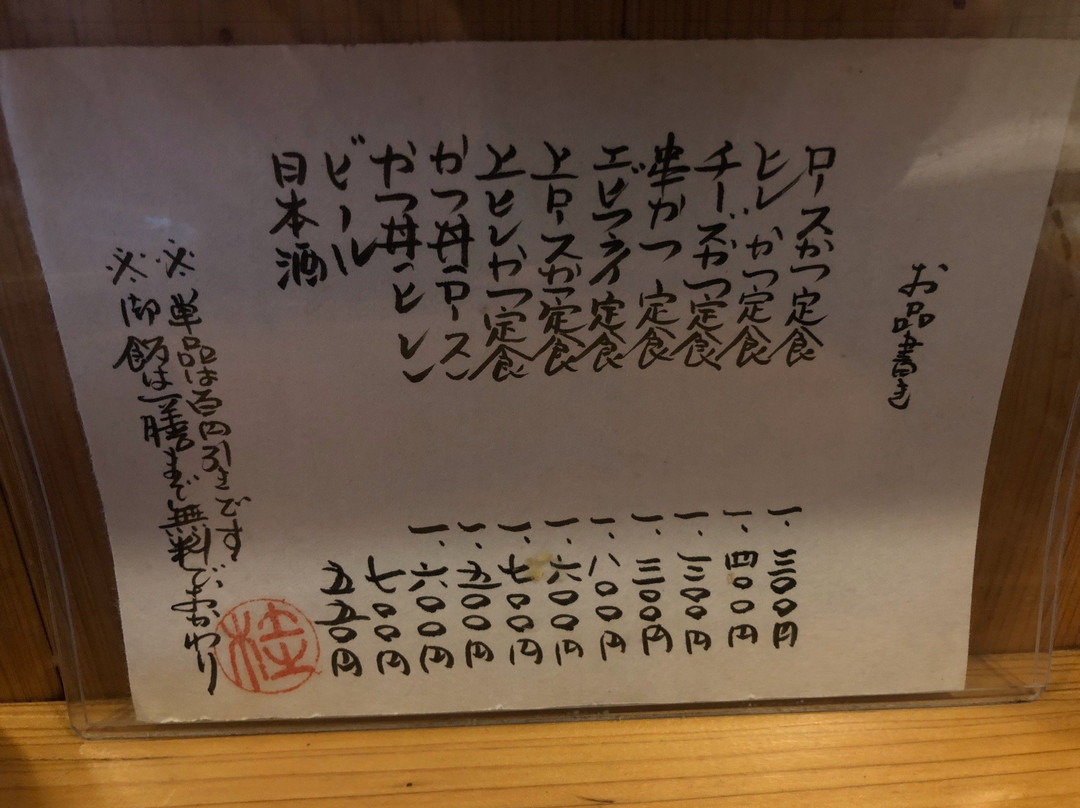 お品書き
ロースかつ定食 一.三〇〇円
ヒレかつ定食 一.四〇〇円
チーズかつ定食 一.三〇〇円
串かつ定食 一.三〇〇円
エビフライ定食 一.八〇〇円
上ロースかつ定食 一.六〇〇円
上ヒレかつ定食 一.七〇〇円
かつ丼(ロース) 一.五〇〇円
かつ丼(ヒレ) 一.六〇〇円
ビール 七〇〇円
日本酒 五五〇円
※単品は百円引きです
※御飯は一膳まで無料でおかわり
桂